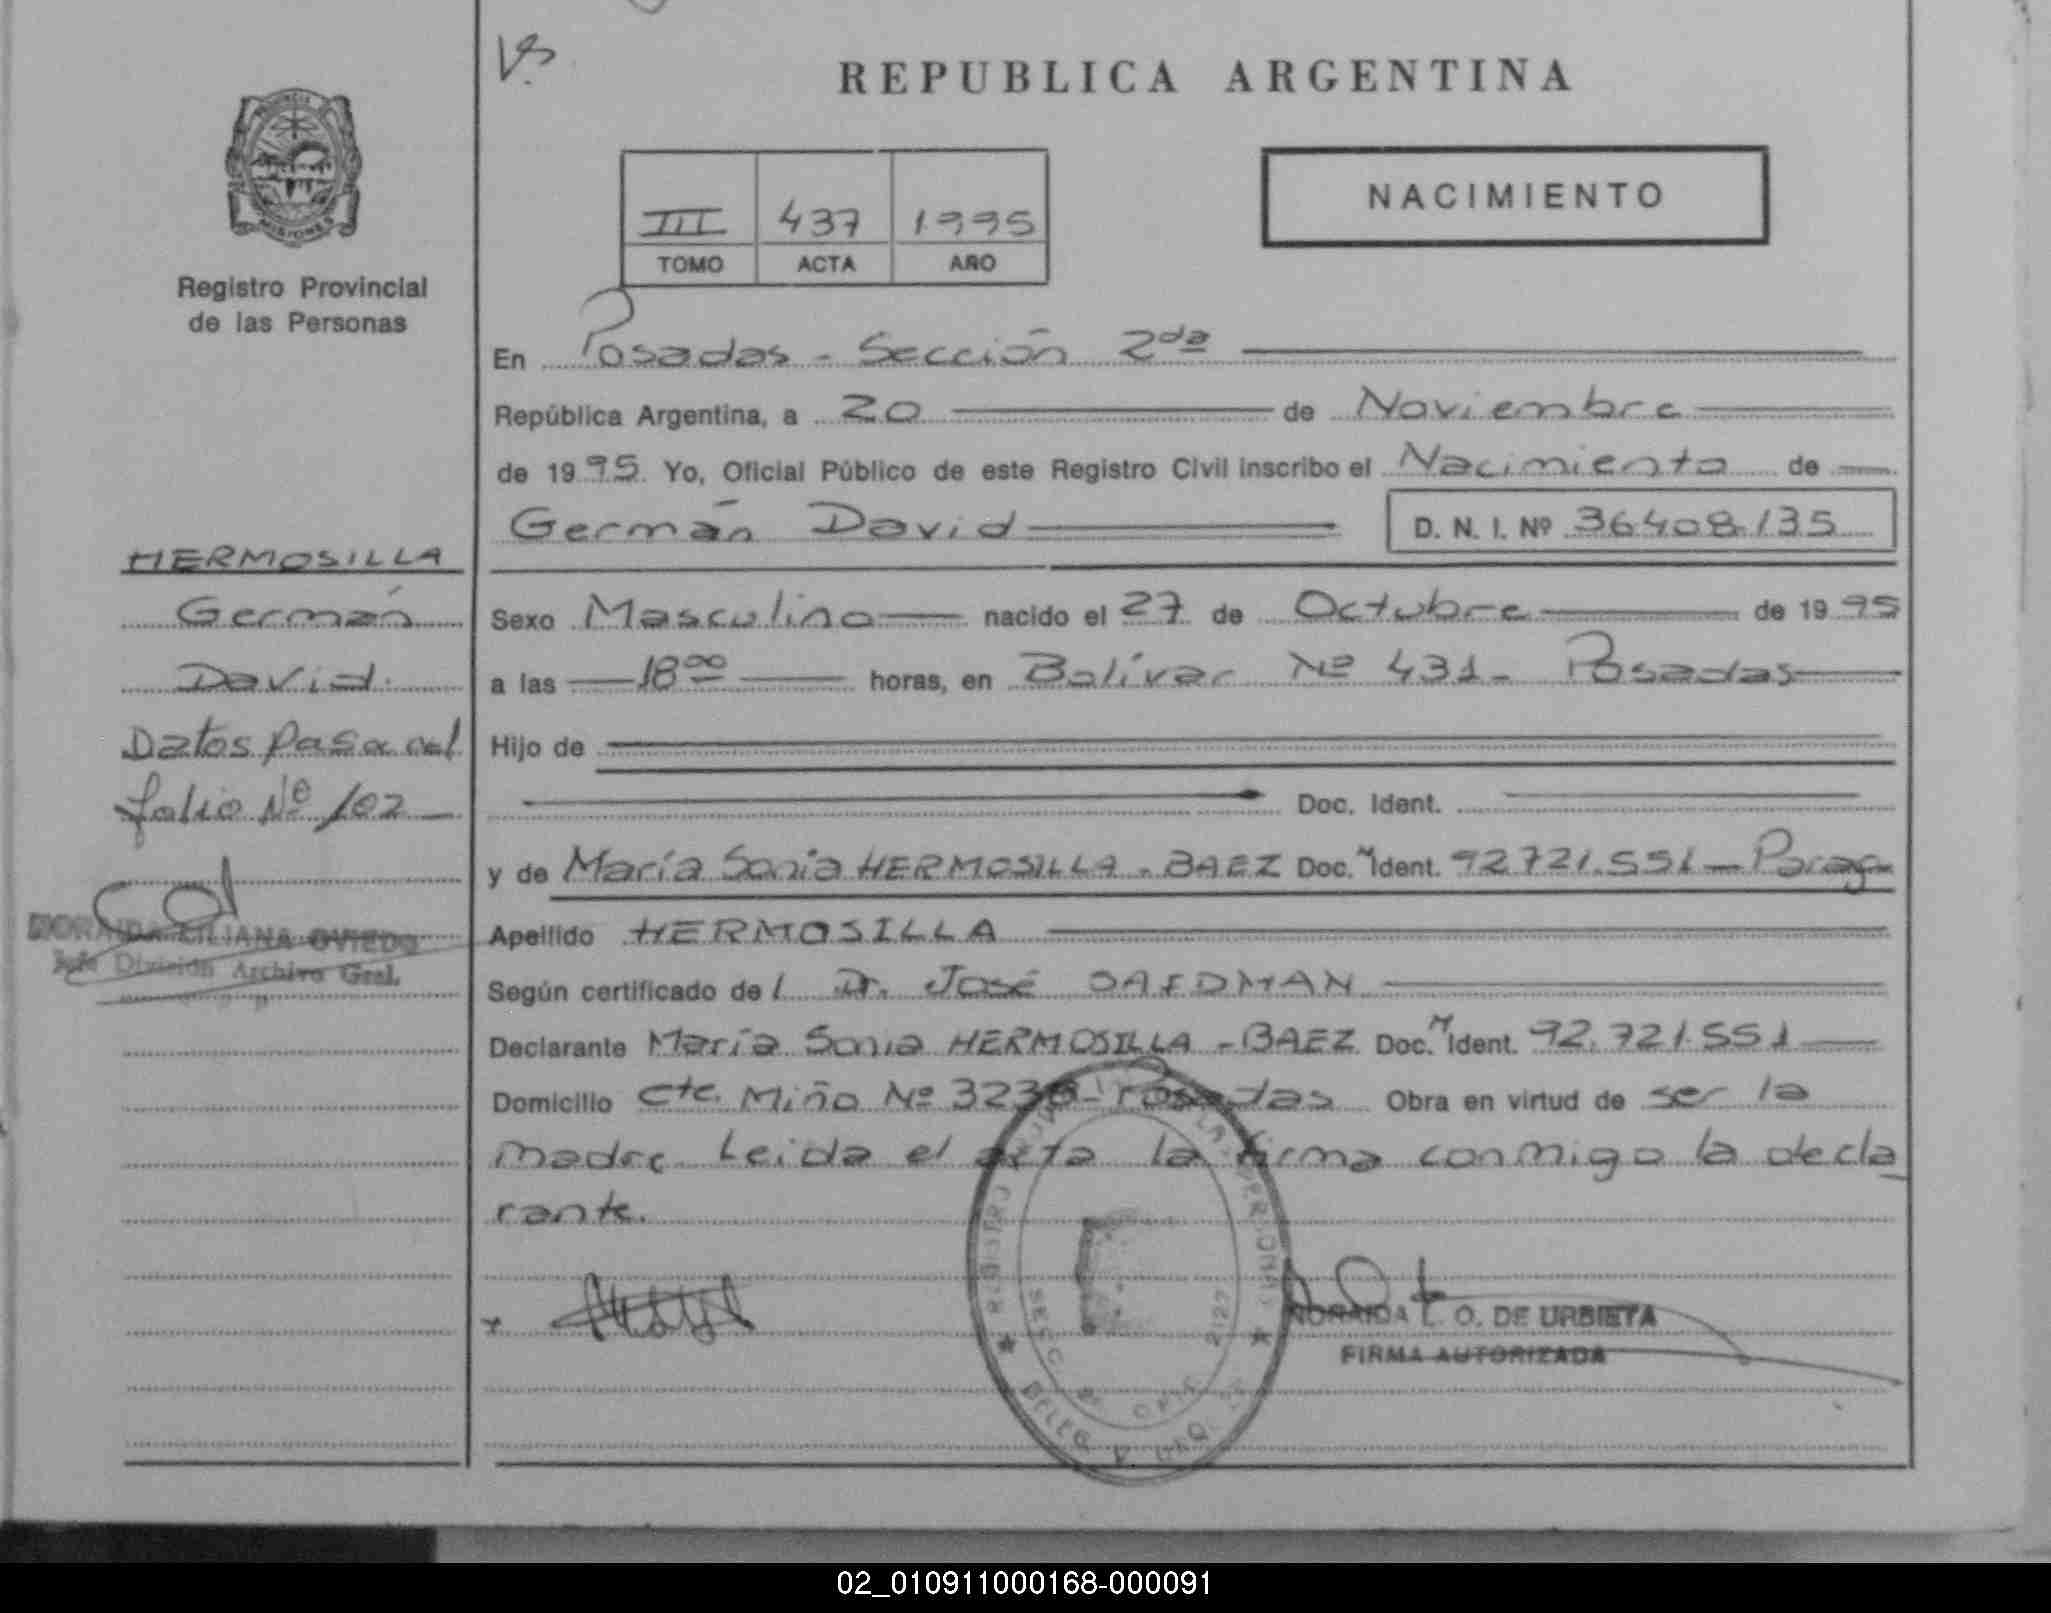 Vº
REPUBLICA ARGENTINA
PROVINCIA
MISIONES
Registro Provincial
de las Personas
III 437 1995
TOMO ACTA AÑO
NACIMIENTO
En Posadas - Sección 2da
República Argentina, a 20 de Noviembre
de 1995. Yo, Oficial Público de este Registro Civil inscribo el Nacimiento de
Germán David D. N. I. Nº 36408.135
HERMOSILLA
Germán
David.
Datos pasa al
folio Nº 102
NORAIDA LILIANA OVIEDO
Jefe División Archivo Gral.
Sexo Masculino nacido el 27 de Octubre de 1995
a las 18ºº horas, en Bolívar Nº 431 - Posadas
Hijo de
Doc. Ident.
y de María Sonia HERMOSILLA - BAEZ Doc. N Ident. 92721.551 - Parag
Apellido HERMOSILLA
Según certificado del Dr. José
Declarante María Sonia HERMOSILLA - BAEZ Doc. N Ident. 92.721.551
Domicilio Cte. Miño Nº 3236 - Posadas Obra en virtud de ser la
madre. Leida el acta la firma conmigo la decla
rante.
REGISTRO PROV LAS PERSONAS
NORAIDA L. O. DE URBIETA
FIRMA AUTORIZADA
02_010911000168-000091